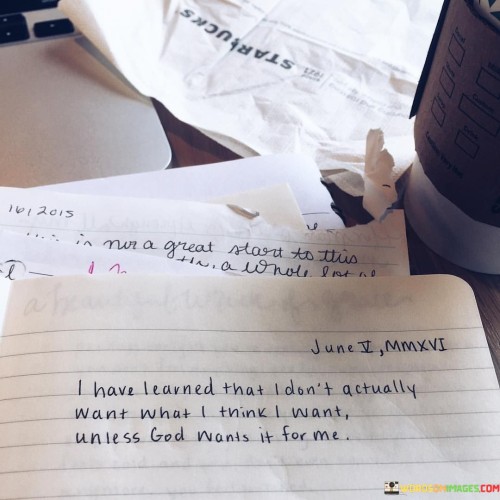 STARBUCKS
16/2015
is not a great start to this
a whole lot of
June V, MMXVI
I have learned that I don't actually
want what I think I want,
unless God wants it for me.
IMAGES.COM